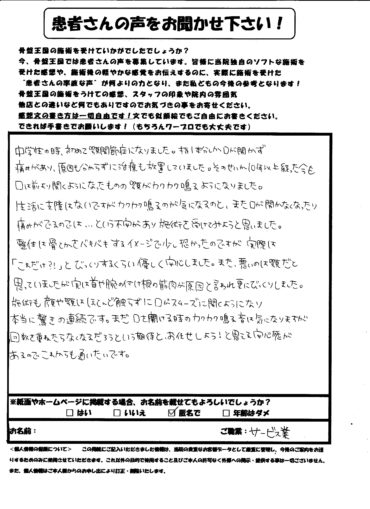 患者さんの声をお聞かせ下さい！
骨盤王国の施術を受けていかがでしたでしょうか？
今、骨盤王国では患者さんの声を募集しています。皆様に当院独自のソフトな施術を
受けた感想や、施術後の軽やかな感覚をお伝えするのに、実際に施術を受けた
“患者さんの率直な声”が何よりの力となり、また私どもの今後の参考となります！
骨盤王国の施術をうけての感想、スタッフの印象や院内の雰囲気
他店との違いなど何でもありですのでお気づきの事をお寄せください。
感想文の書き方は一切自由です！文でも似顔絵でもご自由にお書きください。
できれば手書きでお願いします！（もちろんワープロでも大丈夫です）
中学生の時、初めて顎関節症になりました。指1本分しか口が開かず
痛みがあり、原因も分からずに治療も放置していました。そのせいか10年以上経った今も
口は前より開くようになったものの顎がカクカク鳴るようになりました。
生活に支障はないですがカクカク鳴るのが気になるのと、また口が開かなくなったり
痛みがでるのでは…という不安があり施術を受けてみようと思いました。
整体は骨とかをバキバキするイメージで少し怖かったのですが実際は
「これだけ?!」とびっくりするくらい優しく安心しました。また、悪いのは顎だと
思っていましたが実は首や腕のつけ根の筋肉が原因と言われ更にびっくりしました。
施術も顔や顎はほとんど触らずに口がスムーズに開くようになり
本当に驚きの連続です。まだ口を開ける時のカクカク鳴る音は気になりますが
回数を重ねたらなくなるだろうという期待と、お任せしよう！と思える安心感が
あるのでこれからも通いたいです。
※紙面やホームページに掲載する場合、お名前を載せてもよろしいでしょうか？
□ はい　□ いいえ　☑ 匿名で　□ 年齢はダメ
お名前：　ご職業：サービス業
＜個人情報の保護について＞　この用紙にご記入いただきました情報は、当院の貴重なお客様データとして厳重に管理し、今後のご案内をお送
りするためのみに使用させていただきます。これ以外の目的で使用すること及びご本人の許可なく外部への開示・提供する事は一切ございません。
また、個人情報はご本人様からのお申し出により訂正・削除いたします。